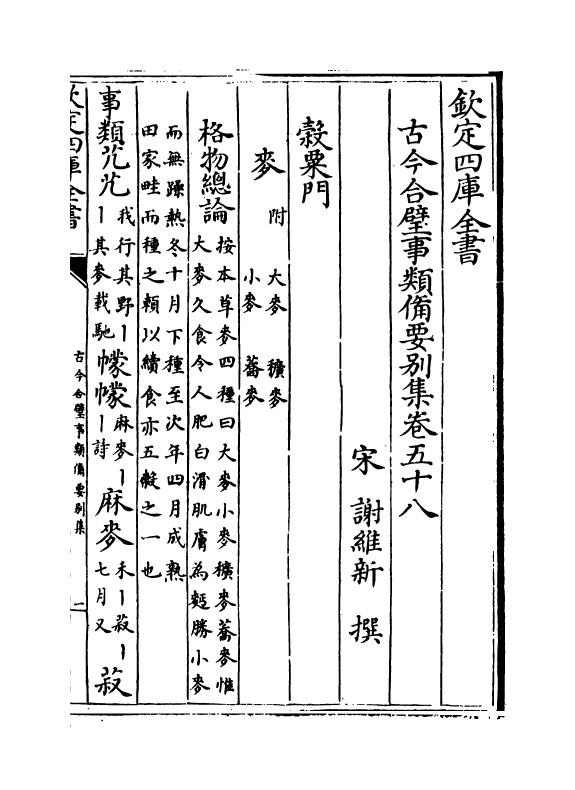 欽定四庫全書
古今合璧事類備要别集卷五十八
宋 謝維新 撰
穀粟門
麥 附 大麥 穬麥
小麥 蕎麥
格物總論 按本草麥四種曰大麥小麥穬麥蕎麥惟
大麥久食令人肥白滑肌膚為麪勝小麥
而無躁熱冬十月下種至次年四月成熟
田家畦而種之賴以續食亦五糓之一也
事類 芃芃 我行其野丨
丨其麥載馳 幪幪 麻麥丨
丨詩 麻麥 禾丨菽丨
七月又 菽
欽定四庫全書
古今合璧事類備要别集
一